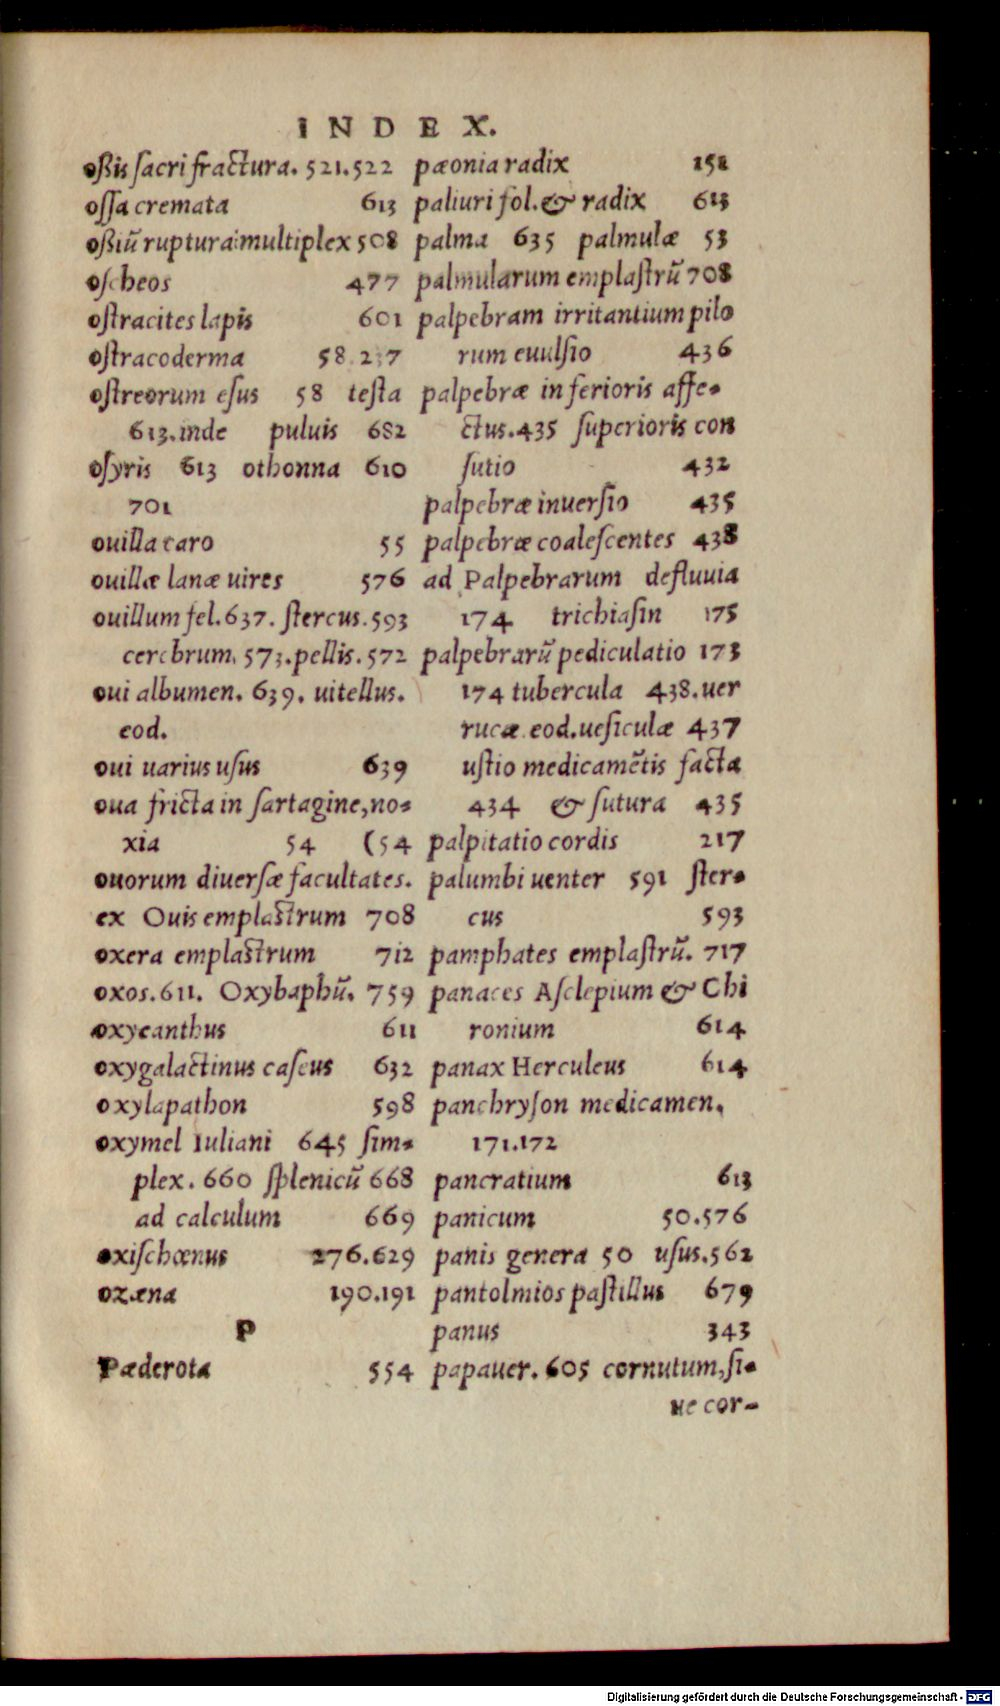 INDEX.
oßis ſacri fractura. 521.522
oſſa cremata 613
oßiũ ruptura multiplex 508
oſcheos 477
oſtracites lapis 601
oſtracoderma 58.237
oſtreorum eſus 58 teſta
613.inde puluis 682
oſyris 613 othonna 610
701
ouilla caro 55
ouillæ lanæ uires 576
ouillum fel.637. ſtercus.593
cerebrum. 573.pellis.572
oui albumen. 639. uitellus.
eod.
oui uarius uſus 639
oua fricta in ſartagine,no-
xia 54 (54
ouorum diuerſæ facultates.
ex Ouis emplastrum 708
oxera emplastrum 712
oxos.611. Oxybaphũ. 759
oxycanthus 611
oxygalactinus caſeus 632
oxylapathon 598
oxymel Iuliani 645 ſim-
plex. 660 ſplenicũ 668
ad calculum 669
oxiſchœnus 276.629
ozæna 190.191
P
Pæderota 554
pæonia radix 151
paliuri fol.& radix 613
palma 635 palmulæ 53
palmularum emplaſtrũ 708
palpebram irritantium pilo
rum euulſio 436
palpebræ inferioris affe-
ctus.435 ſuperioris con
ſutio 432
palpebræ inuerſio 435
palpebræ coaleſcentes 438
ad Palpebrarum defluuia
174 trichiaſin 175
palpebrarũ pediculatio 173
174 tubercula 438.uer
rucæ eod.ueſiculæ 437
uſtio medicamẽtis facta
434 & ſutura 435
palpitatio cordis 217
palumbi uenter 591 ſter-
cus 593
pamphates emplaſtrũ. 717
panaces Aſclepium & Chi
ronium 614
panax Herculeus 614
panchryſon medicamen.
171.172
pancratium 613
panicum 50.576
panis genera 50 uſus.562
pantolmios paſtillus 679
panus 343
papauer. 605 cornutum,ſi-
ue cor-
Digitalisierung gefördert durch die Deutsche Forschungsgemeinschaft - DFG